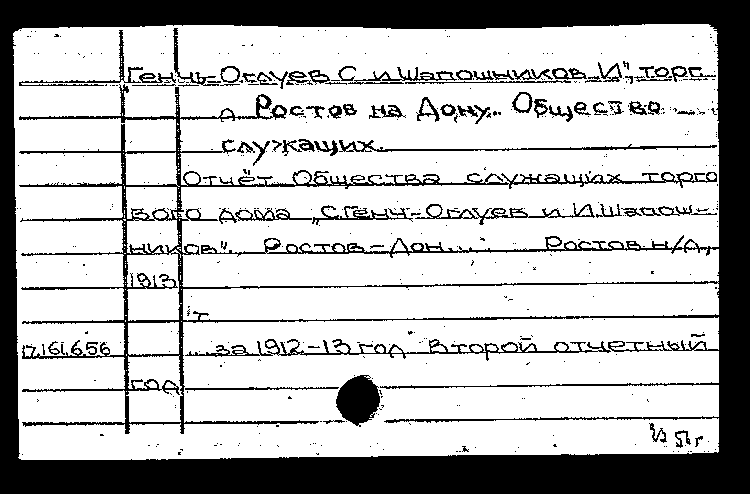 „Генч-Оглуев С. и Шапошников И", торг.
д. Ростов на Дону. Общество
служащих.
Отчёт Общества служащих торго
вого дома „С.Генч-Оглуев и И.Шапош-
ников". Ростов-Дон...: Ростов н/Д.,
1913
т
17.161.6.56 ... за 1912-13 год Второй отчетный
год
56 г